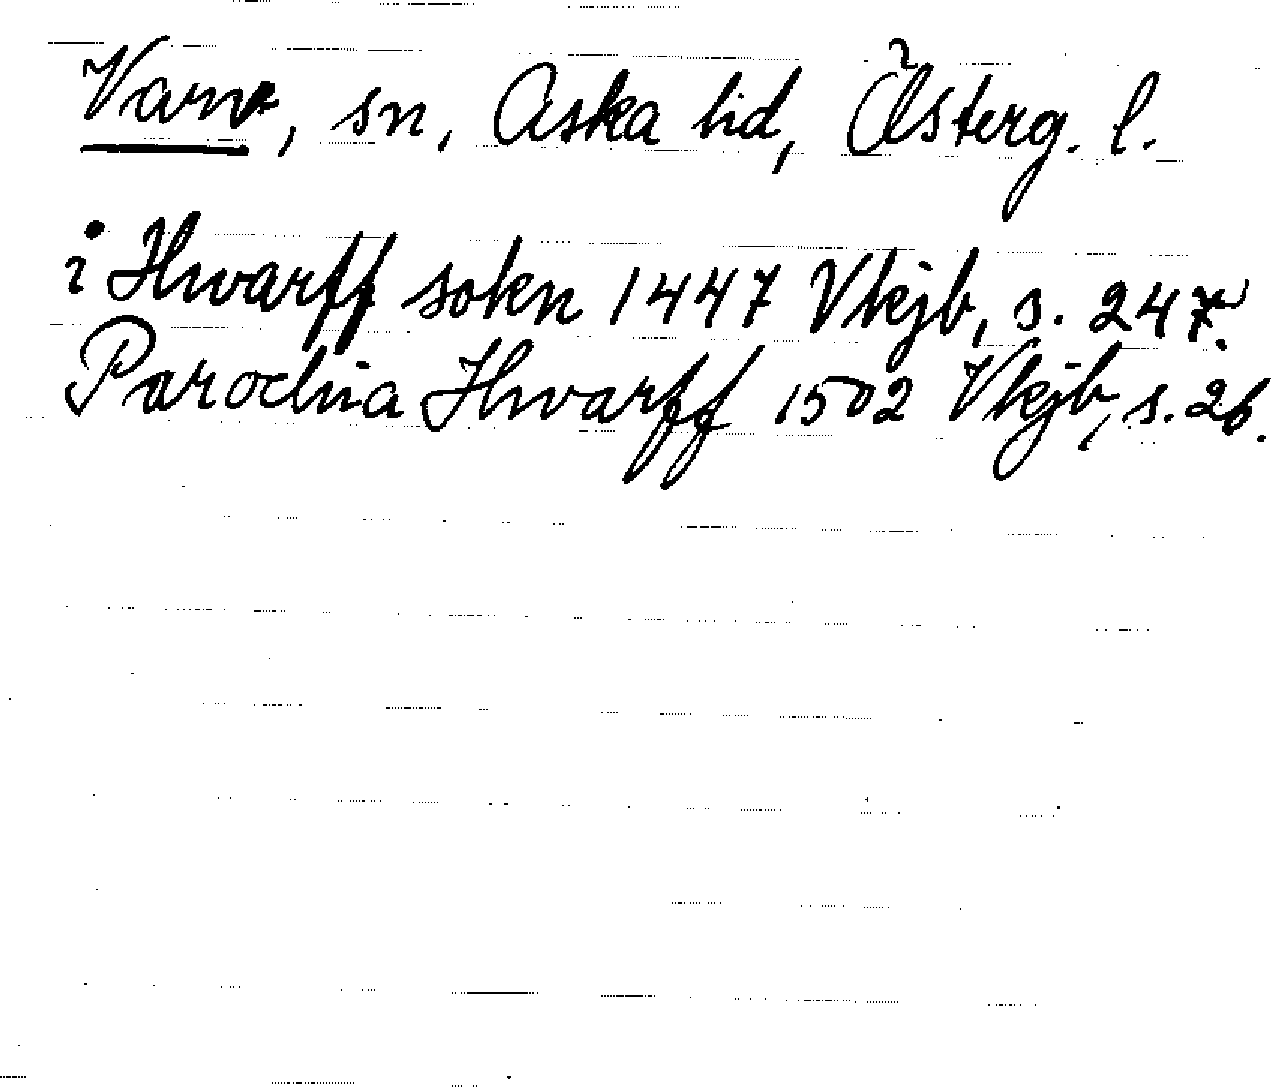 Varv, sn, Aska hd, Österg. l.
i Hwarff sokn 1447 Vkjb, s. 247.
Parochia Hwarff 1502 Vkjb, s. 26.